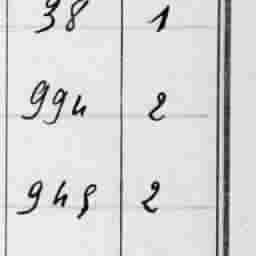 38 1
994 2
945 2